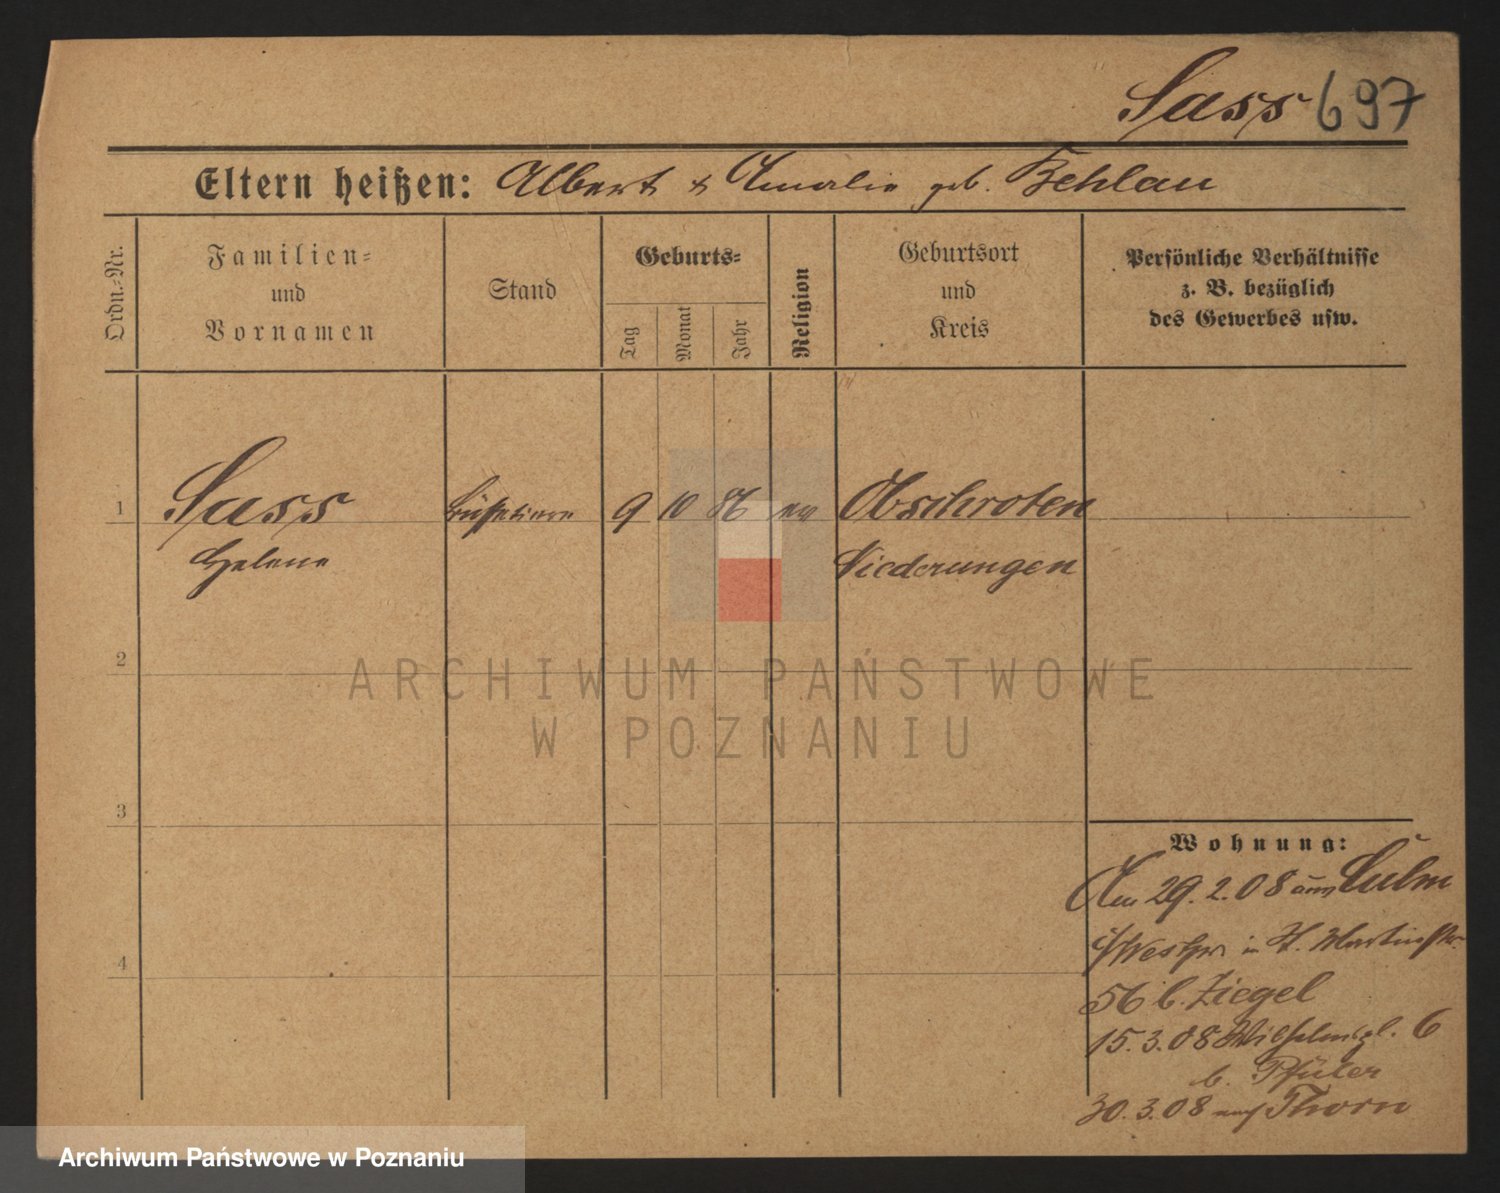 Sass 697
Eltern heißen: Albert & Amalie geb. Behlau
Ordn.-Nr.
Familien-
und
Vornamen
Stand
Geburts-
Tag
Monat
Jahr
Religion
Geburtsort
und
Kreis
Persönliche Verhältnisse
z. B. bezüglich
des Gewerbes usw.
1 Sass Büffetiere 9 10 86 ev Obschroten
Helene Niederungen
2
ARCHIWUM PAŃSTWOWE
W POZNANIU
3
Wohnung:
Am 29.2.08 aus Culm
i/Westpr in St. Martinstr.
4
56 b. Ziegel
15.3.08 Wilhelmspl. 6
b.
30.3.08 nach Thorn
Archiwum Państwowe w Poznaniu